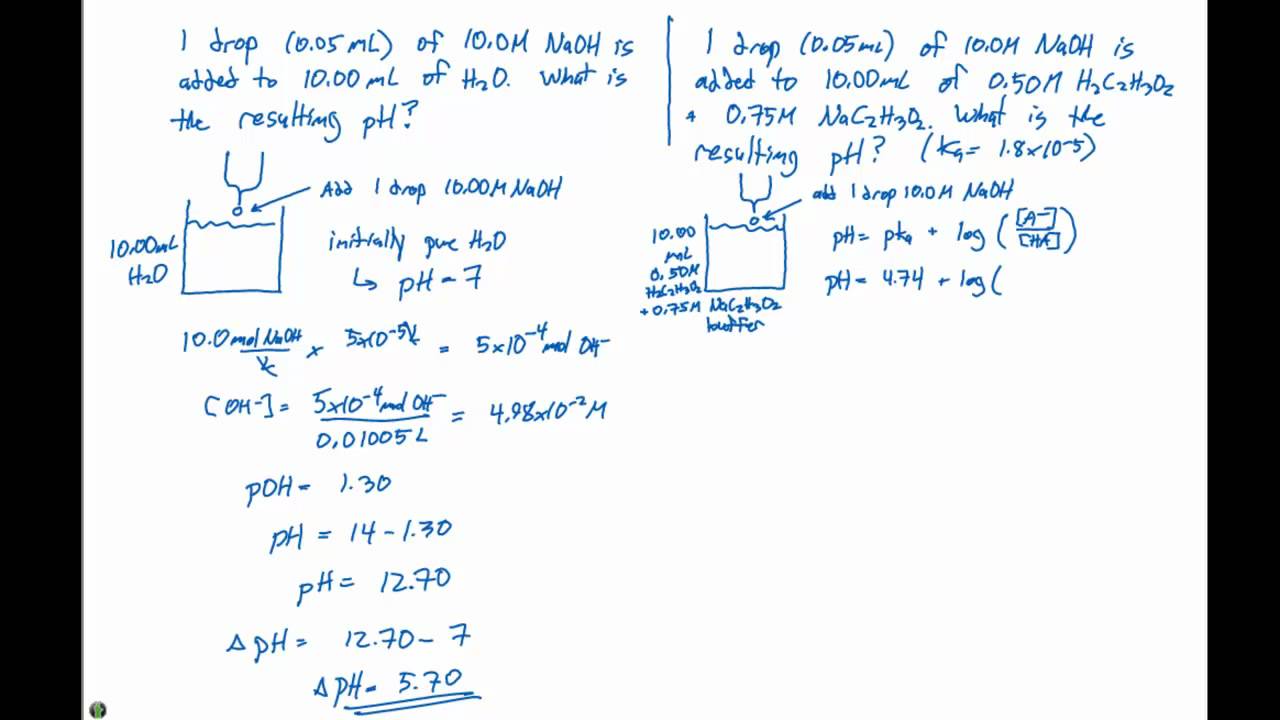 1 drop (0.05 mL) of 10.0M NaOH is
added to 10.00 mL of H2O. What is
the resulting pH?
Add 1 drop 10.00M NaOH
10.00mL
H2O
initially pure H2O
↳ pH = 7
10.0 mol NaOH / L × 5×10-5 L = 5×10-4 mol OH-
[OH-] = 5×10-4 mol OH- / 0.01005 L = 4.98×10-2 M
pOH = 1.30
pH = 14 - 1.30
pH = 12.70
Δ pH = 12.70 - 7
Δ pH = 5.70
1 drop (0.05mL) of 10.0M NaOH is
added to 10.00mL of 0.50M H2C2H3O2
+ 0.75M NaC2H3O2. What is the
resulting pH? (Ka = 1.8×10-5)
add 1 drop 10.0M NaOH
10.00
mL
0.50M
H2C2H3O2
+0.75M NaC2H3O2
buffer
pH = pKa + log ([A-]/[HA])
pH = 4.74 + log (